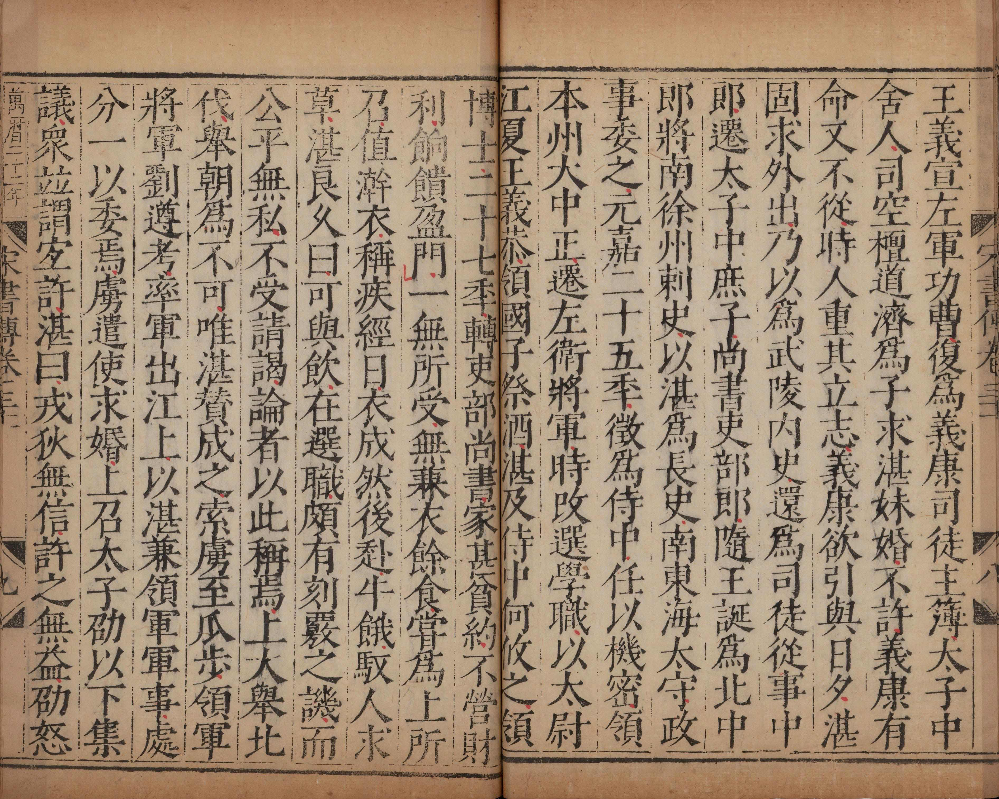 王義宣左軍功曹復爲義康司徒主簿太子中
舍人司空檀道濟爲子求湛妹婚不許義康有
命又不從時人重其立志義康欲引與日夕湛
固求外出乃以爲武陵內史還爲司徒從事中
郎遷太子中庶子尚書吏部郎隨王誕爲北中
郎將南徐州刺史以湛爲長史南東海太守政
事委之元嘉二十五季徵爲侍中任以機密領
本州大中正遷左衛將軍時改選學職以太尉
江夏王義恭領國子祭酒湛及侍中何攸之領
宋書傳卷三十一
八
博士二十七季轉吏部尚書家甚貧約不營財
利餉饋盈門一無所受無兼衣餘食嘗爲上所
乃值澣衣稱疾經日衣成然後赴牛餓馭人求
草湛良久曰可與飲在選職頗有刻覈之譏而
公平無私不受請謁論者以此稱焉上大舉北
伐舉朝爲不可唯湛贊成之索虜至瓜步領軍
將軍劉遵考率軍出江上以湛兼領軍軍事處
分一以委焉虜遣使求婚上召太子劭以下集
議衆並謂宜許湛曰戎狄無信許之無益劭怒
萬曆二十二年
宋書傳卷三十一
九